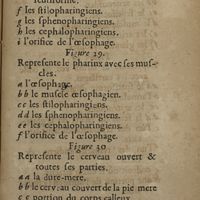 f les stilopharingiens.
g les sphenopharingiens.
h les cephalopharingiens.
i l'orifice de l'œsophage.
Figure 29.
Represente le pharinx avec ses mus-
cles.
a l'œsophage.
b b le muscle œsophagien.
c c les stilopharingiens.
d d les sphenopharingiens.
e e les cephalopharingiens.
f l'orifice de l'œsophage.
Figure 30
Represente le cerveau ouvert &
toutes ses parties.
a a la dure-mere.
b b le cerveau couvert de la pie mere
c c portion du corps calleux